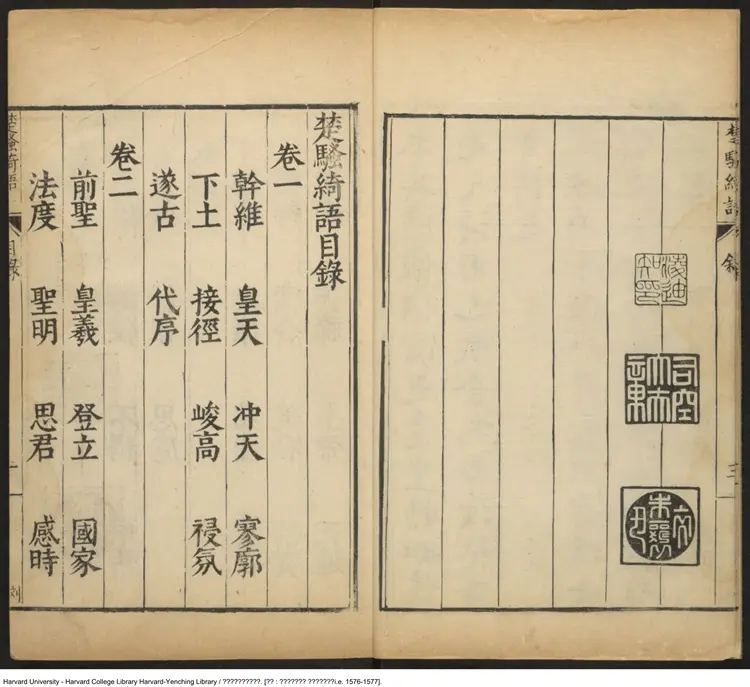 楚騷綺語
叙
三
凌迪
知印
楚騷綺語目錄
卷一
幹維 皇天 冲天 寥廓
下土 接徑 峻高 祲氛
遂古 代序
卷二
前聖 皇羲 登立 國家
法度 聖明 思君 感時
楚騷綺語
目錄
一
Harvard University - Harvard College Library Harvard-Yenching Library / ??????????. [?? : ??????? ???????i.e. 1576-1577].